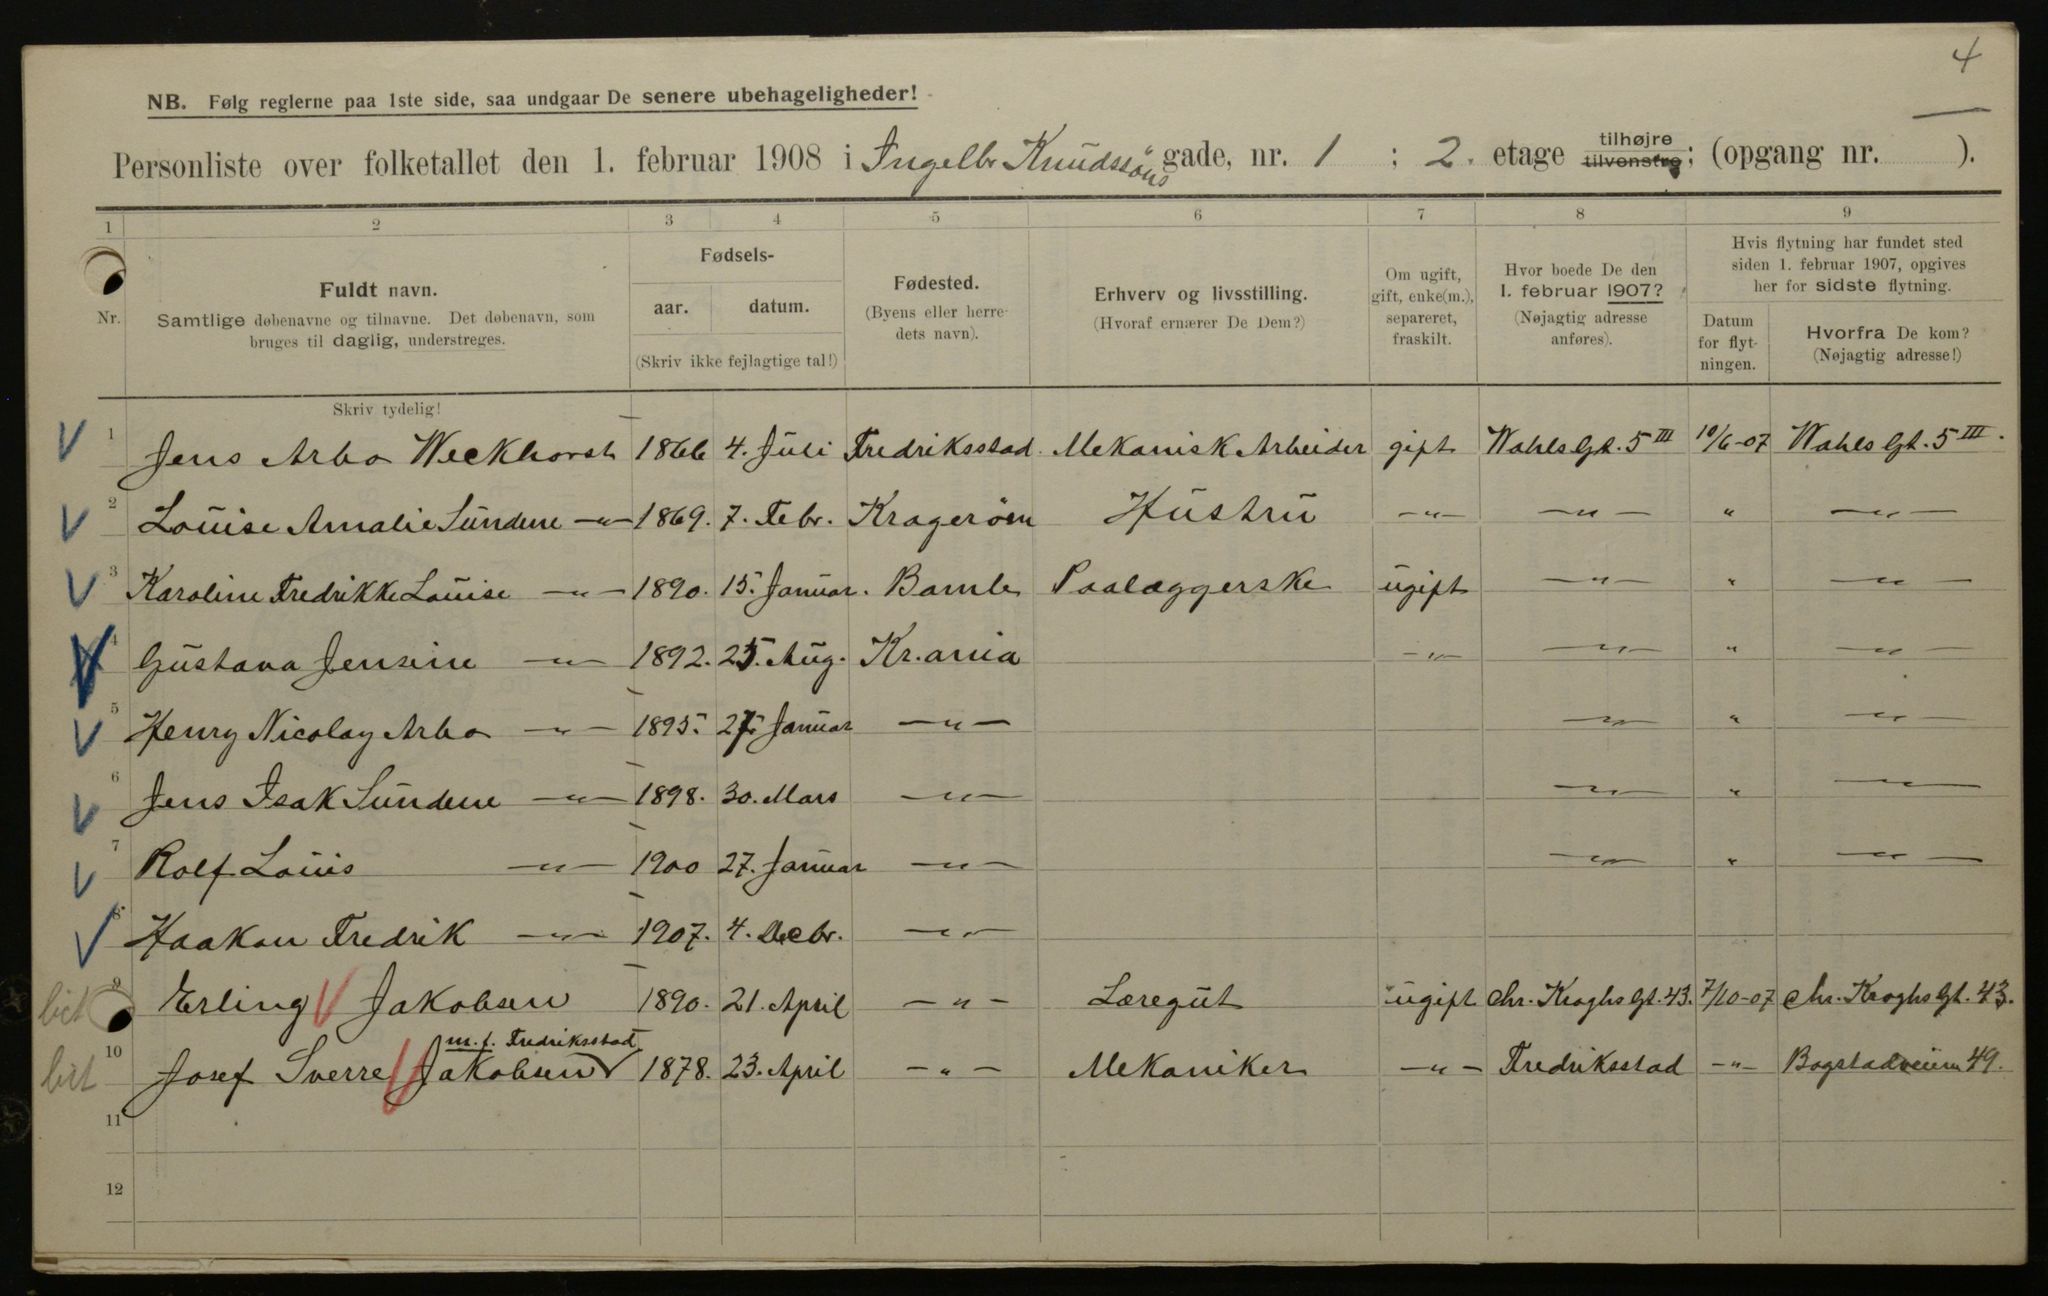 4
NB. Følg reglerne paa 1ste side, saa undgaar De senere ubehageligheder!
Personliste over folketallet den 1. februar 1908 i Ingelbr Knudssöns gade, nr. 1 ; 2. etage tilhøjre tilvenstre; (opgang nr. ).
1 2 3 4 5 6 7 8 9
Nr.
Fuldt navn.
Samtlige døbenavne og tilnavne. Det døbenavn, som
bruges til daglig, understreges.
Fødsels-
aar. datum.
(Skriv ikke fejlagtige tal!)
Fødested.
(Byens eller herre-
dets navn).
Erhverv og livsstilling.
(Hvoraf ernærer De Dem?)
Om ugift,
gift, enke(m.),
separeret,
fraskilt.
Hvor boede De den
1. februar 1907?
(Nøjagtig adresse
anføres).
Hvis flytning har fundet sted
siden 1. februar 1907, opgives
her for sidste flytning.
Datum
for flyt-
ningen.
Hvorfra De kom?
(Nøjagtig adresse!)
Skriv tydelig!
1 Jens Arbo Weckhorst 1866 4. Juli Fredriksstad. Mekanisk Arbeider gift Wahls Gt. 5 III 10/6-07 Wahls Gt. 5 III.
2 Louise Amalie Sundene -„- 1869. 7. Febr. Krageröen Hustru -„- -„- „ -„-
3 Karoline Fredrikke Louise -„- 1890. 15. Januar. Bamle Paalæggerske ugift -„- „ -„-
4 Gustava Jensine -„- 1892. 25. Aug. Kr.ania -„- -„- „ -„-
5 Henry Nicolay Arbo -„- 1895. 27. Januar -„- -„- „ -„-
6 Jens Isak Sundene -„- 1898. 30. Mars -„- -„- „ -„-
7 Rolf Louis -„- 1900 27. Januar -„- -„- „ -„-
8 Haakon Fredrik -„- 1907. 4. Decbr. -„-
9 Erling Jakobsen 1890. 21. April -„- Læregut ugift Chr. Kroghs Gt. 43. 7/10-07 Chr. Kroghs Gt. 43.
m. f. Fredriksstad
10 Josef Sverre Jakobsen 1878. 23. April -„- Mekaniker -„- Fredriksstad -„- Bogstadveien 49.
11
12